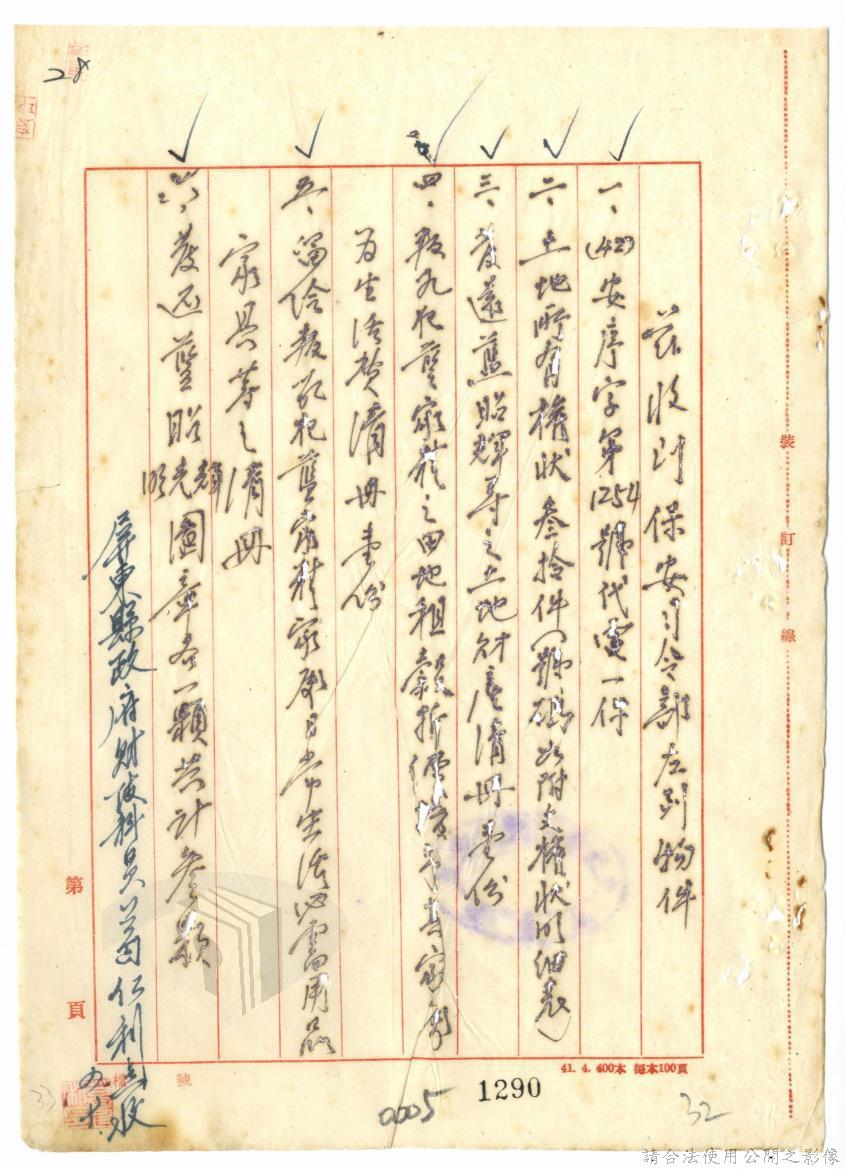 28
茲收到保安司令部左列物件
一、(42)安序字第1254號代電一件
二、土地所有權狀叁拾件(號碼如附文權狀明細表)
三、發還藍昭輝等之土地財產清冊壹份
四、叛亂犯藍家精之田地租穀折價撥予其家屬
為生活費清冊壹份
五、留給叛亂犯藍家精家屬日常生活必需用品
家具等之清冊
六、發還藍昭輝光明圖章各一顆共計叁顆
屏東縣政府財政科員葛仁利
裝
訂
線
第
頁
檔
號
41. 4. 400本 每本100頁
1290
0005
32
33
請合法使用公開之影像